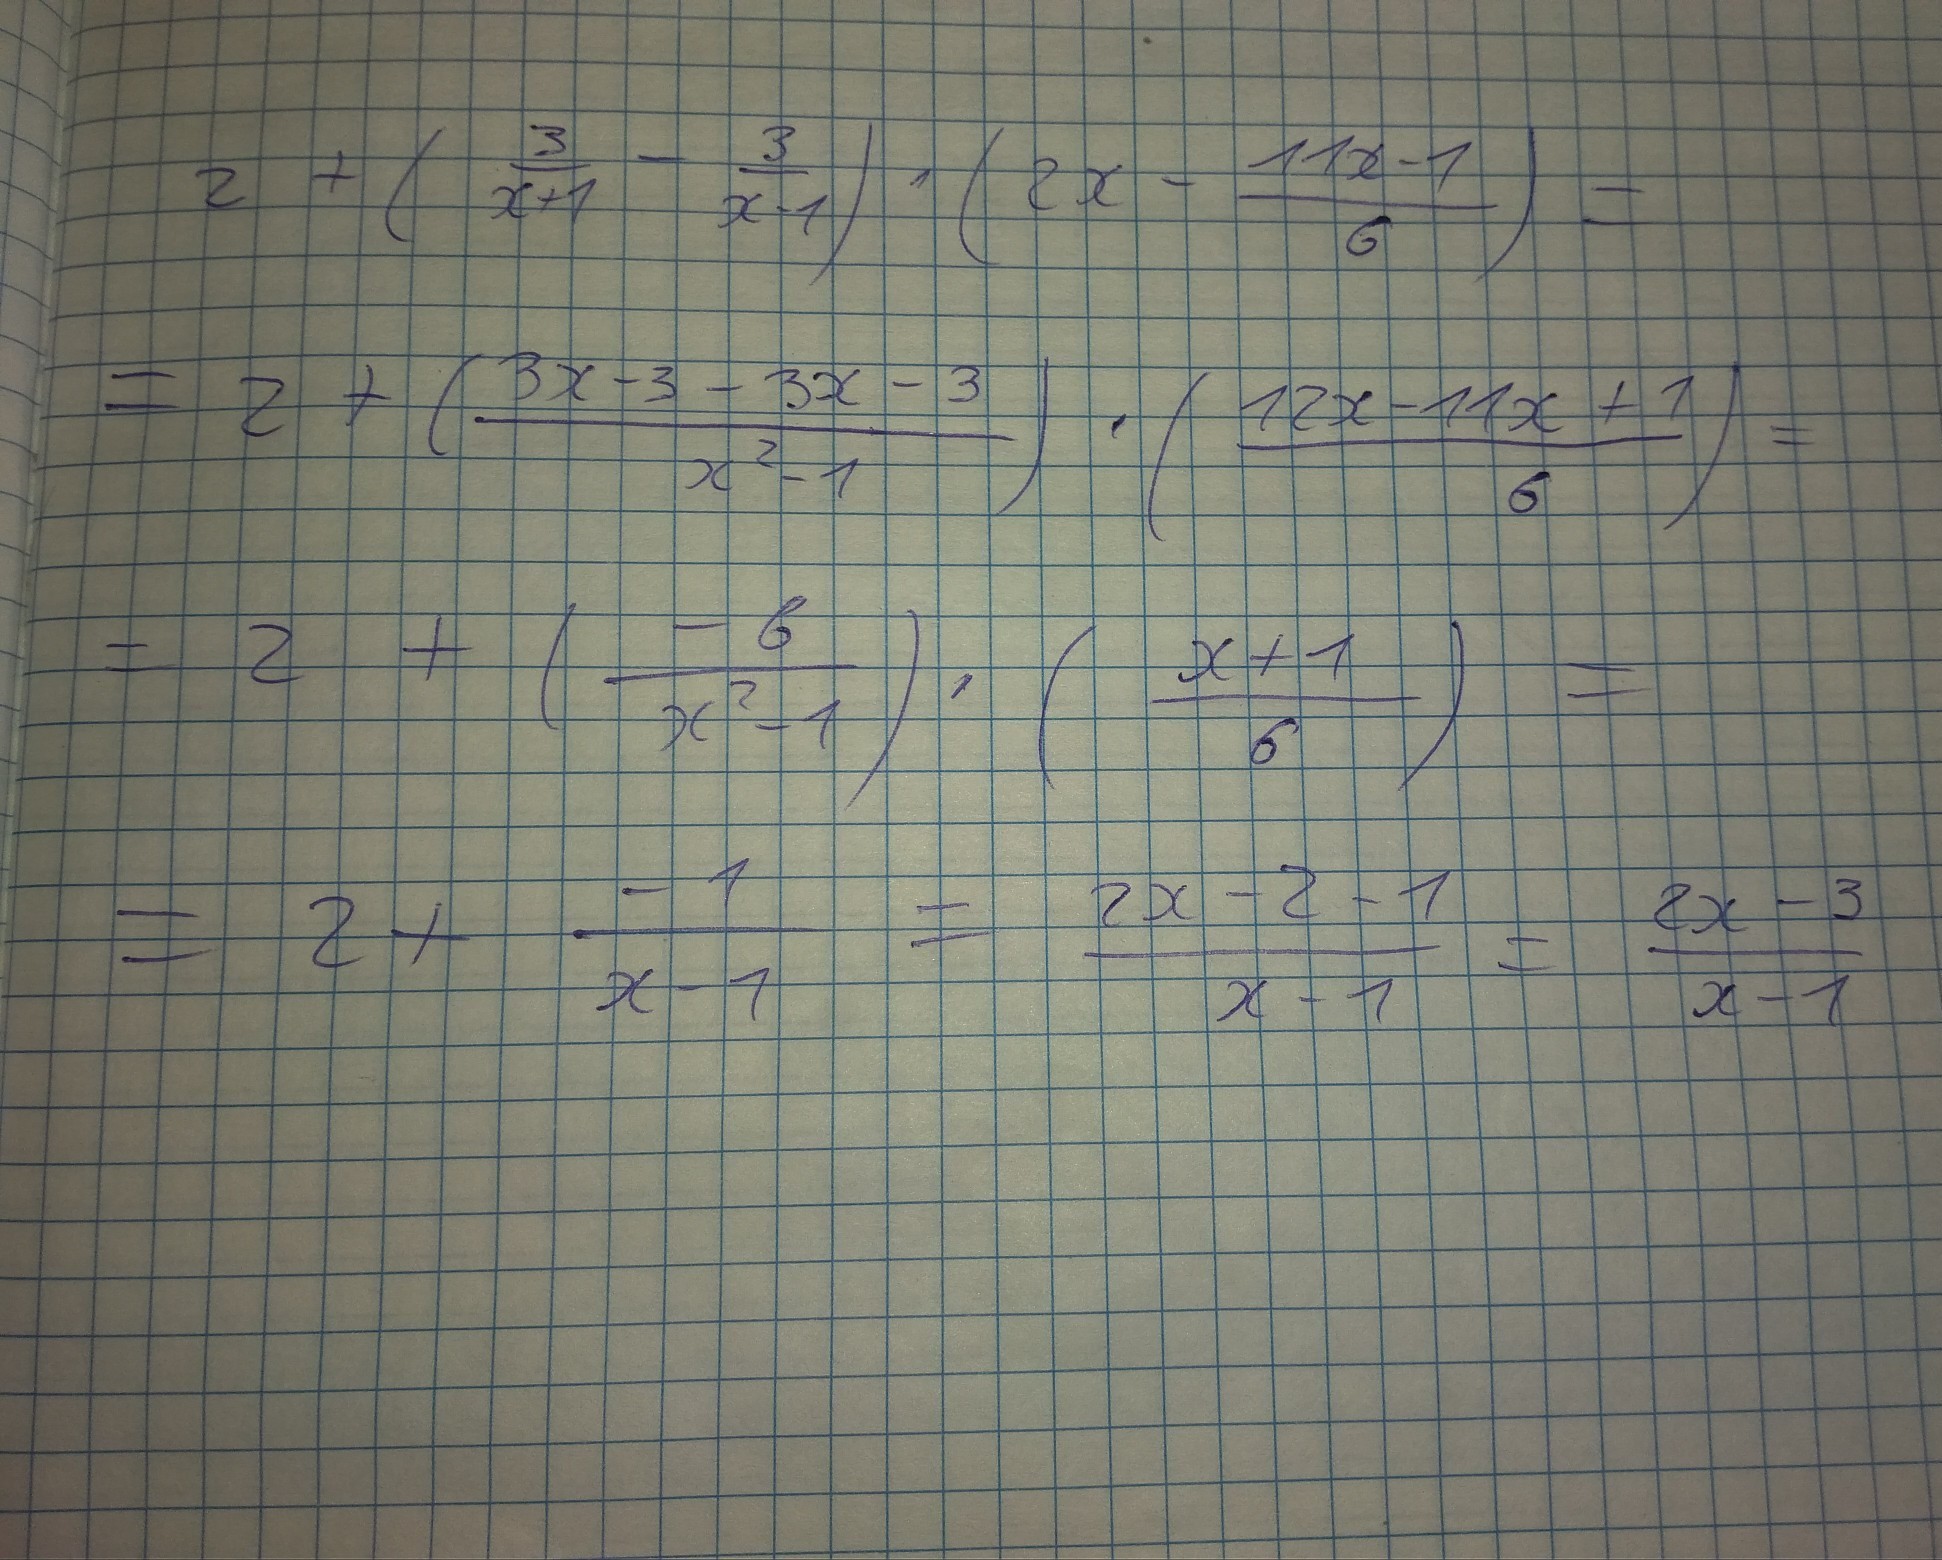 2 + ( 3/(x+1) - 3/(x-1) ) · ( 2x - (11x-1)/6 ) =
= 2 + ( (3x-3-3x-3)/(x²-1) ) · ( (12x-11x+1)/6 ) =
= 2 + ( -6/(x²-1) ) · ( (x+1)/6 ) =
= 2 + -1/(x-1) = (2x-2-1)/(x-1) = (2x-3)/(x-1)